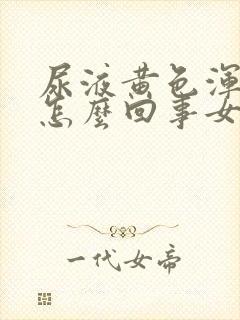 尿液黄色浑
怎麼回事女
一代女帝